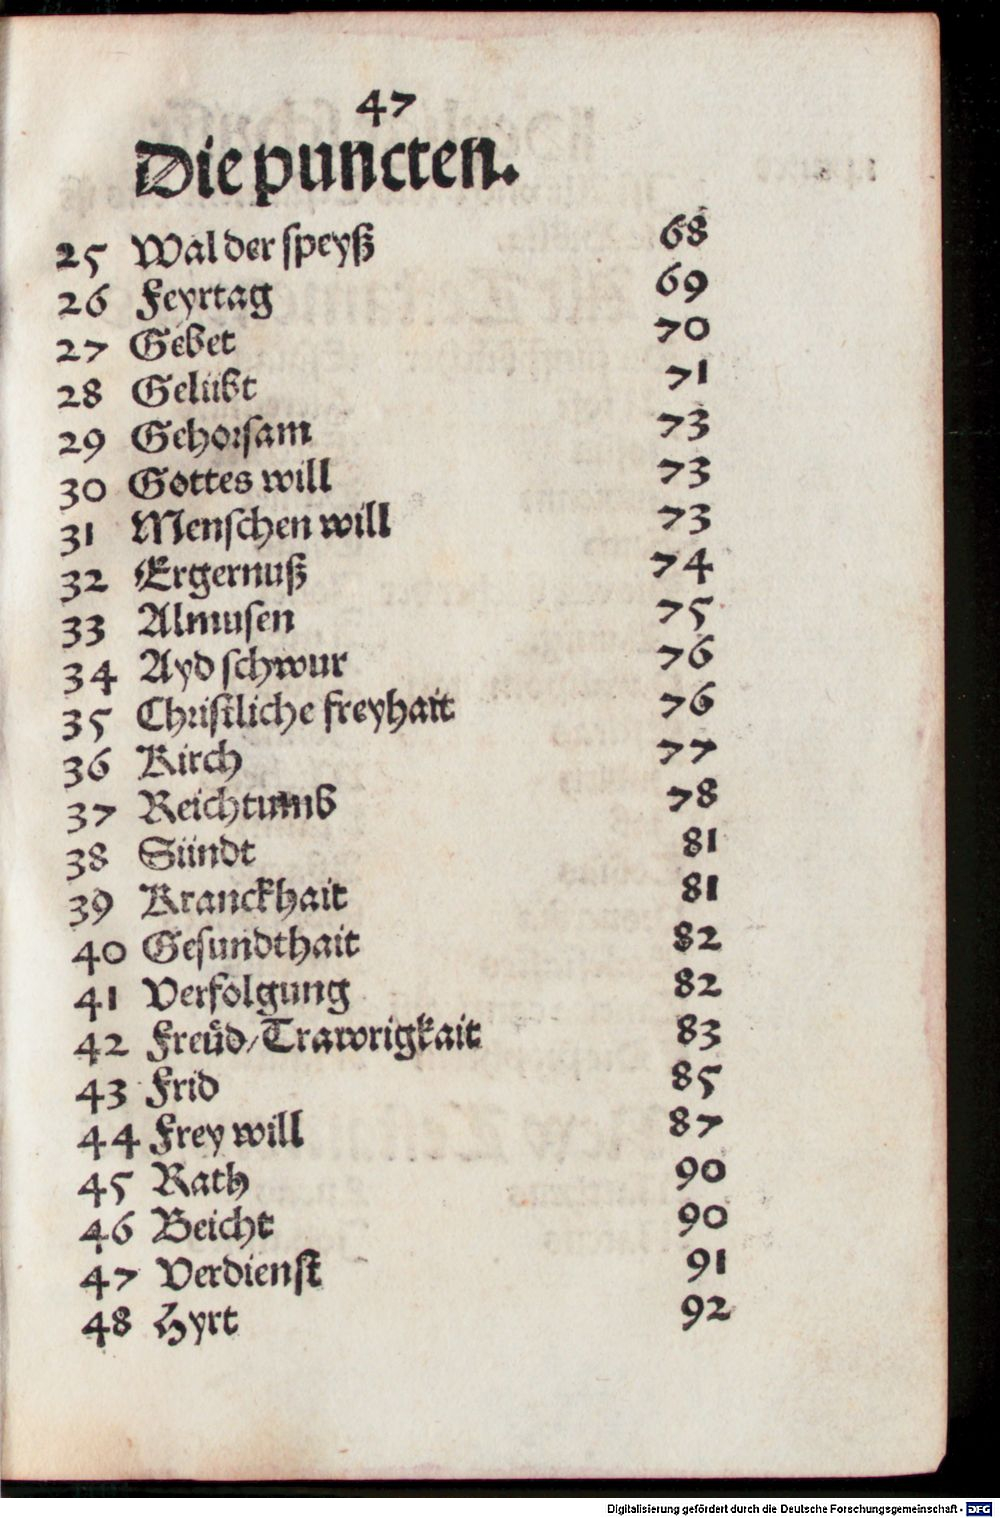 47
Die puncten.
25 Wal der speyß 68
26 Feyrtag 69
27 Gebet 70
28 Gelübt 71
29 Gehorsam 73
30 Gottes will 73
31 Menschen will 73
32 Ergernuß 74
33 Almusen 75
34 Ayd schwur 76
35 Christliche freyhait 76
36 Kirch 77
37 Reichtumb 78
38 Sündt 81
39 Kranckhait 81
40 Gesundthait 82
41 Verfolgung 82
42 Freüd/Trawrigkait 83
43 Frid 85
44 Frey will 87
45 Rath 90
46 Beicht 90
47 Verdienst 91
48 Hyrt 92
Digitalisierung gefördert durch die Deutsche Forschungsgemeinschaft - DFG